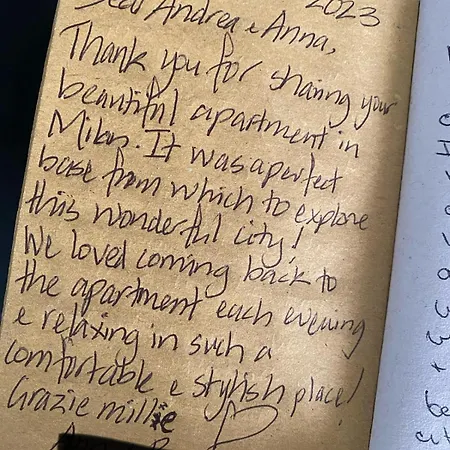 2023
Dear Andrea e Anna,
Thank you for sharing your
beautiful apartment in
Milan. It was a perfect
base from which to explore
this wonderful city!
We loved coming back to
the apartment each evening
e relaxing in such a
comfortable e stylish place!
Grazie mille